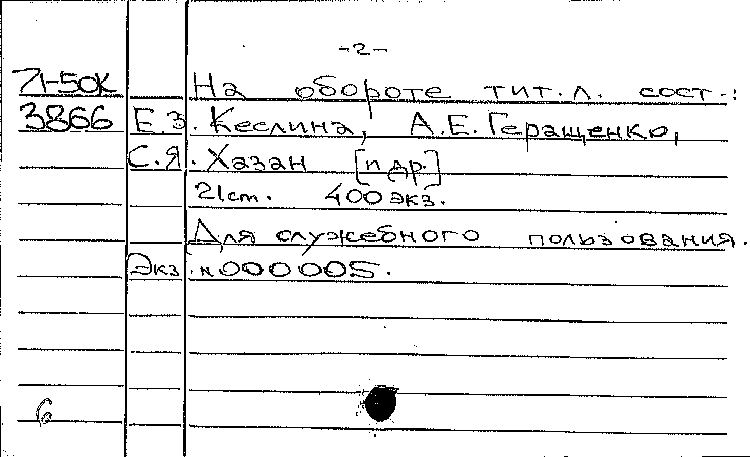 -2-
71-50К На обороте тит.л. сост.:
3866 Е.З. Кеслина, А.Е. Геращенко,
С.Я. Хазан [и др.]
21cm. 400 экз.
Для служебного пользования.
Экз. N 000005.
6